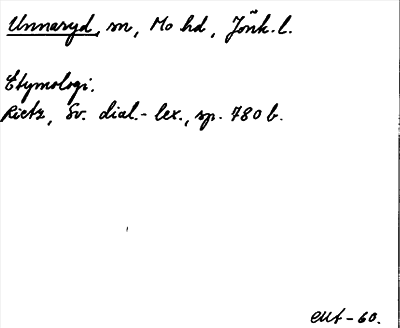 Unnaryd, sn, Mo hd, Jönk. l.
Etymologi.
Rietz, Sv. dial.- lex., sp. 780 b.
-60.